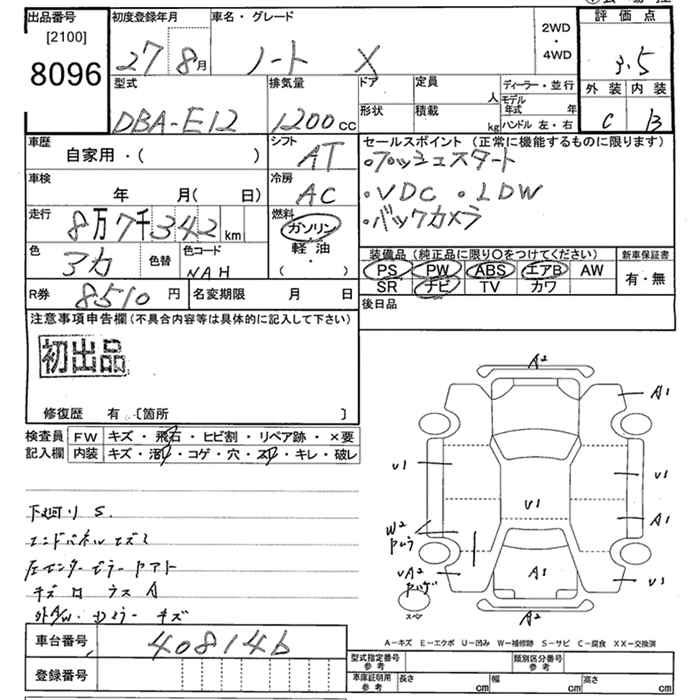 出品番号 初度登録年月 車名・グレード 評価点
[2100]
8096
27 8月 ノート X
2WD
・
4WD
3.5
型式 排気量 ドア 定員 人 ディーラー・並行 外装 内装
DBA-E12 1200cc
形状 積載 kg
モデル年式 年
ハンドル 左・右
C B
車歴 シフト セールスポイント (正常に機能するものに限ります)
自家用・( ) AT
・プッシュスタート
車検 冷房
年 月( 日) AC
・VDC ・LDW
走行 燃料
8万7千342km ガソリン
・バックカメラ
色 色替 色コード 軽油
アカ NAH
・
( )
装備品 (純正品に限り〇をつけてください) 新車保証書
PS PW ABS エアB AW
SR ナビ TV カワ
有・無
R券 8510円 名変期限 月 日
後日品
注意事項申告欄(不具合内容等は具体的に記入して下さい)
初出品
修復歴 有 〔箇所 〕
検査員 FW キズ・飛石・ヒビ割・リペア跡・×要
記入欄 内装 キズ・汚レ・コゲ・穴・スレ・キレ・破レ
A2
A1
U1
U1
U1
A1
W2
A1
U1
A2
下廻り S.
キズ
車台番号 408146
登録番号
A-キズ E-エクボ U-凹み W-補修跡 S-サビ C-腐食 XX-交換済
型式指定番号 参考 類別区分番号 参考
車庫証明用 参考 長さ cm 幅 cm 高さ cm